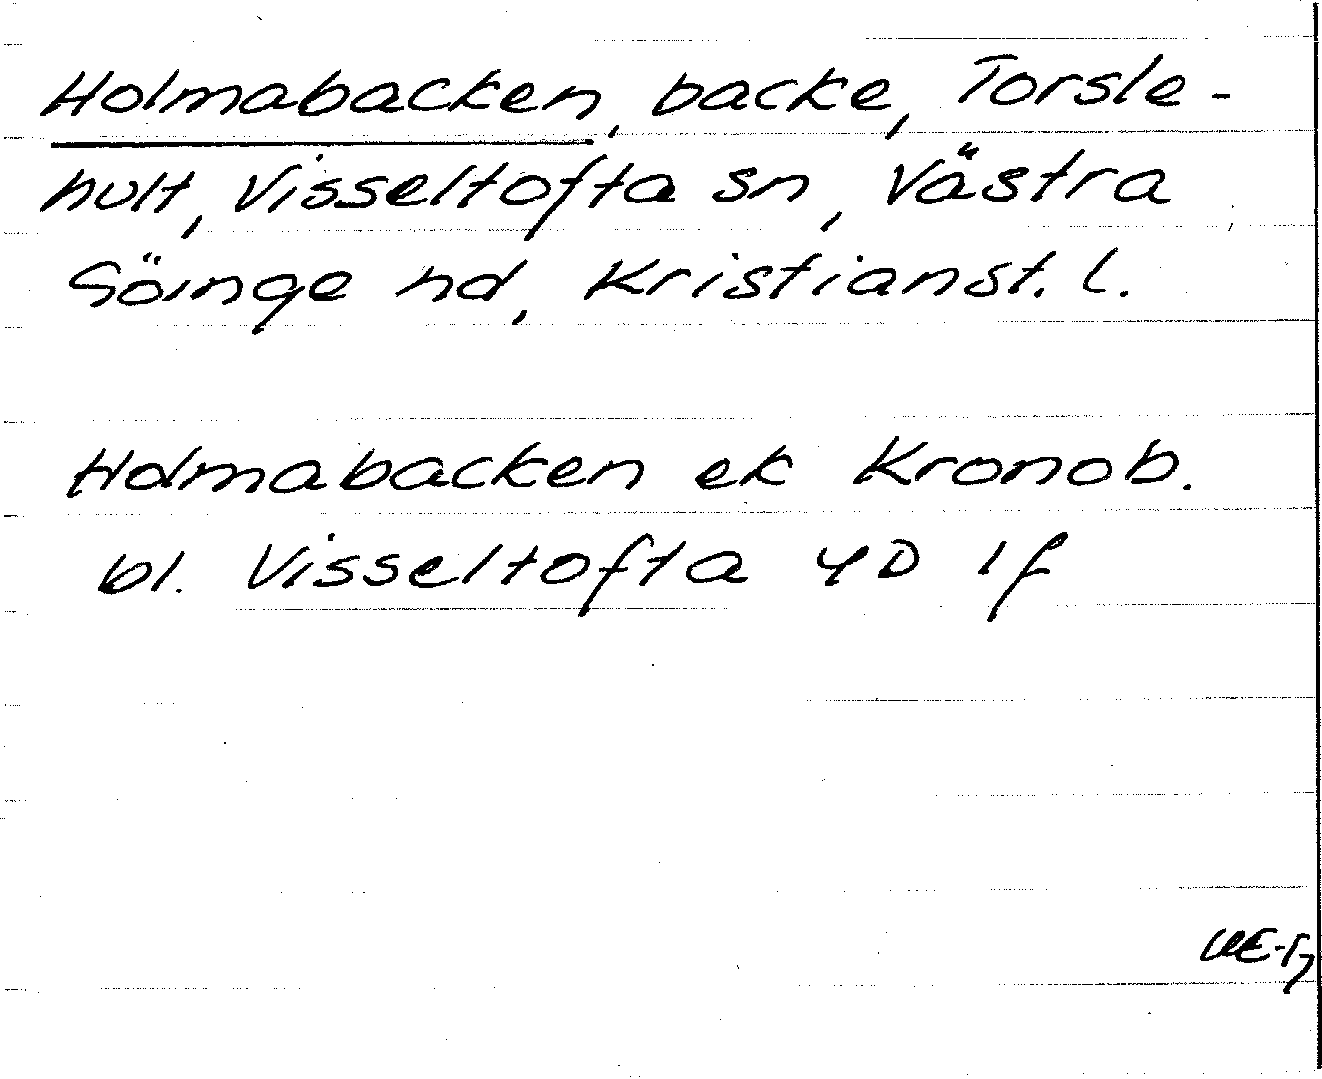 Holmabacken, backe, Torsle-
hult, Visseltofta sn, Västra
Göinge hd, Kristianst. l.
Holmabacken ek Kronob.
bl. Visseltofta 4D 1f